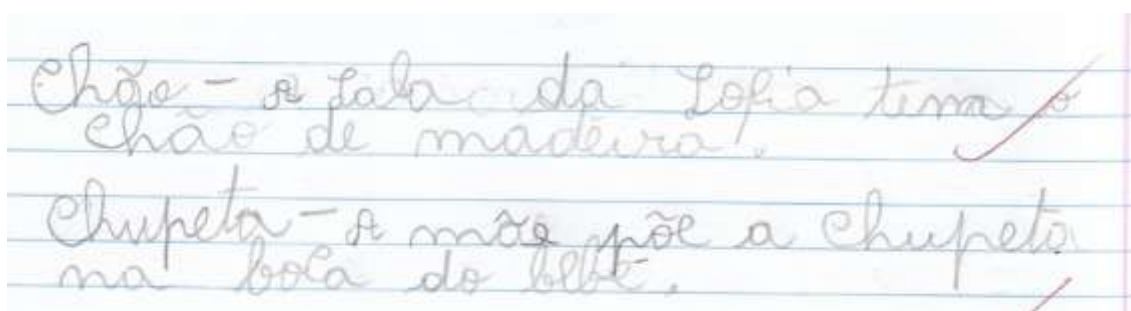 Chão - A sala da Sofia tem o
chão de madeira.
Chupeta - A mãe põe a chupeta
na boca do bebé.